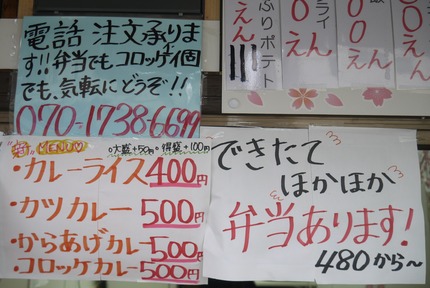 電話注文承りま
す!!弁当でもコロッケ1個
でも、気軽にどうぞ!!
070-1738-6699
ふりポテト
えん
ライ
00えん
00えん
00えん
新MENU
○大盛+50円 ○特盛+100円
・カレーライス400円
・カツカレー500円
・からあげカレー500円
・コロッケカレー500円
できたて
ほかほか
弁当あります!
480から~